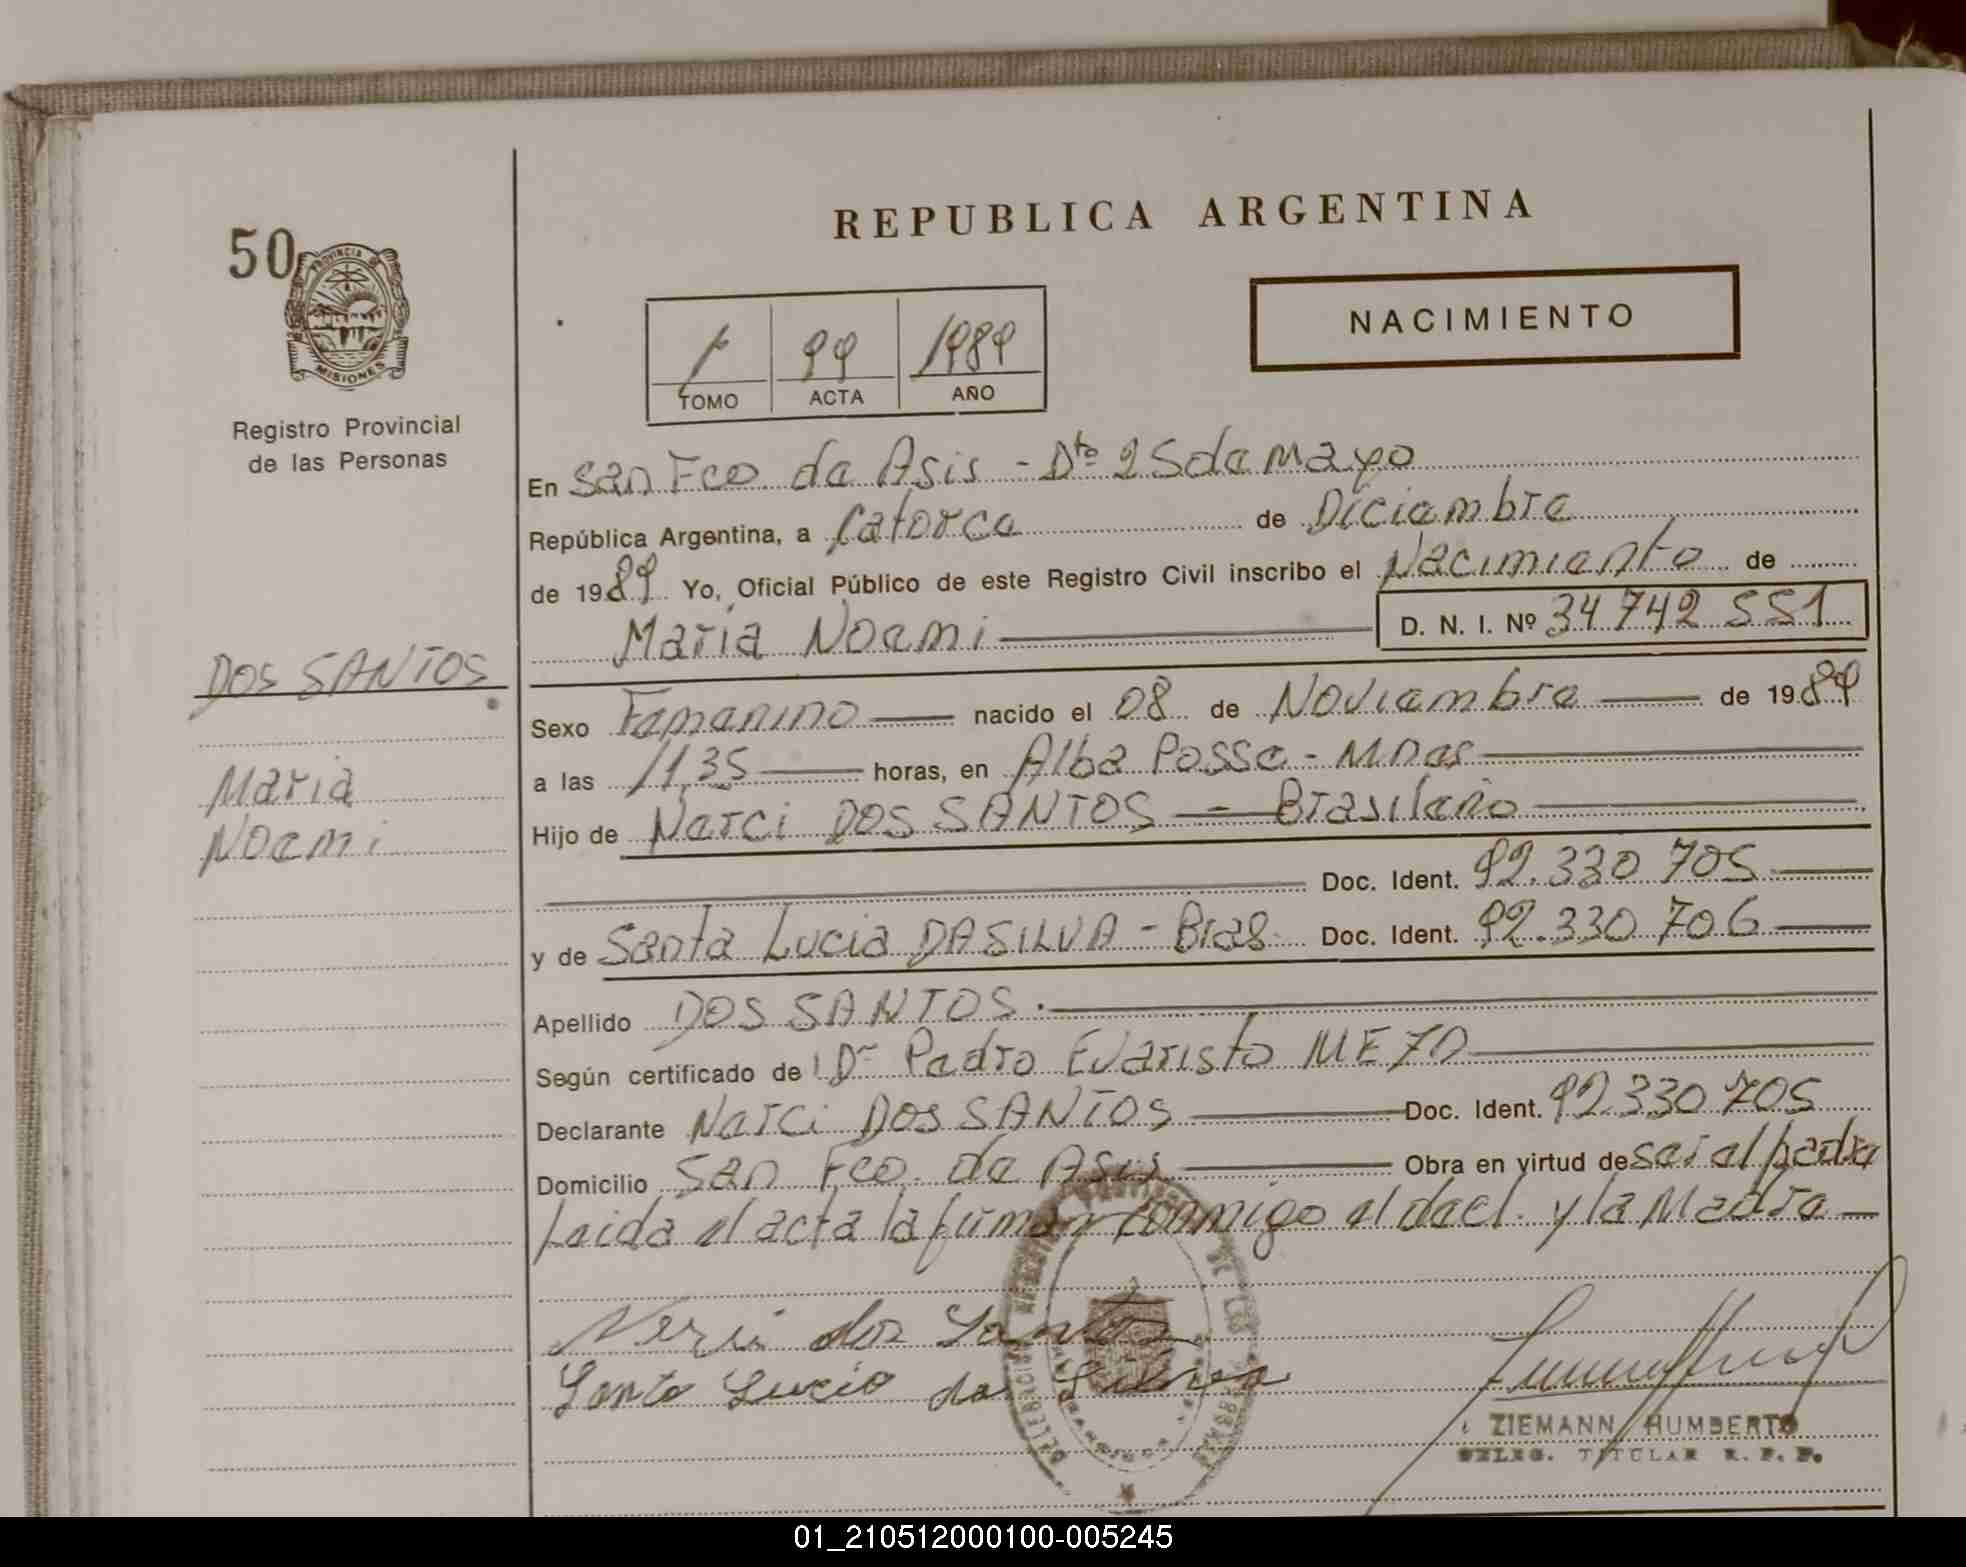 REPUBLICA ARGENTINA
50
PROVINCIA DE
MISIONES
Registro Provincial
de las Personas
1 99 1989
TOMO ACTA AÑO
NACIMIENTO
En San Fco de Asis - Dto 25 de Mayo
República Argentina, a Catorce de Diciembre
de 1989 Yo, Oficial Público de este Registro Civil inscribo el Nacimiento de
Maria Noemi D. N. I. Nº 34 742 551
DOS SANTOS
Maria
Noemi
Sexo Femenino nacido el 08 de Noviembre de 1989
a las 11,35 horas, en Alba Posse - Mnes
Hijo de Nerci DOS SANTOS - Brasileño
Doc. Ident. 92.330 705
y de Santa Lucia DA SILVA - Bras Doc. Ident. 92.330 706
Apellido DOS SANTOS.
Según certificado de Dr Pedro Evaristo
Declarante Nerci DOS SANTOS Doc. Ident. 92.330 705
Domicilio San Fco. de Asis Obra en virtud de ser el padre
Leida el acta la firman conmigo el decl. y la Madre
dos Santos
Santa Lucia da Silva
ZIEMANN HUMBERTO
DELEG. TITULAR R. P. P.
01_210512000100-005245